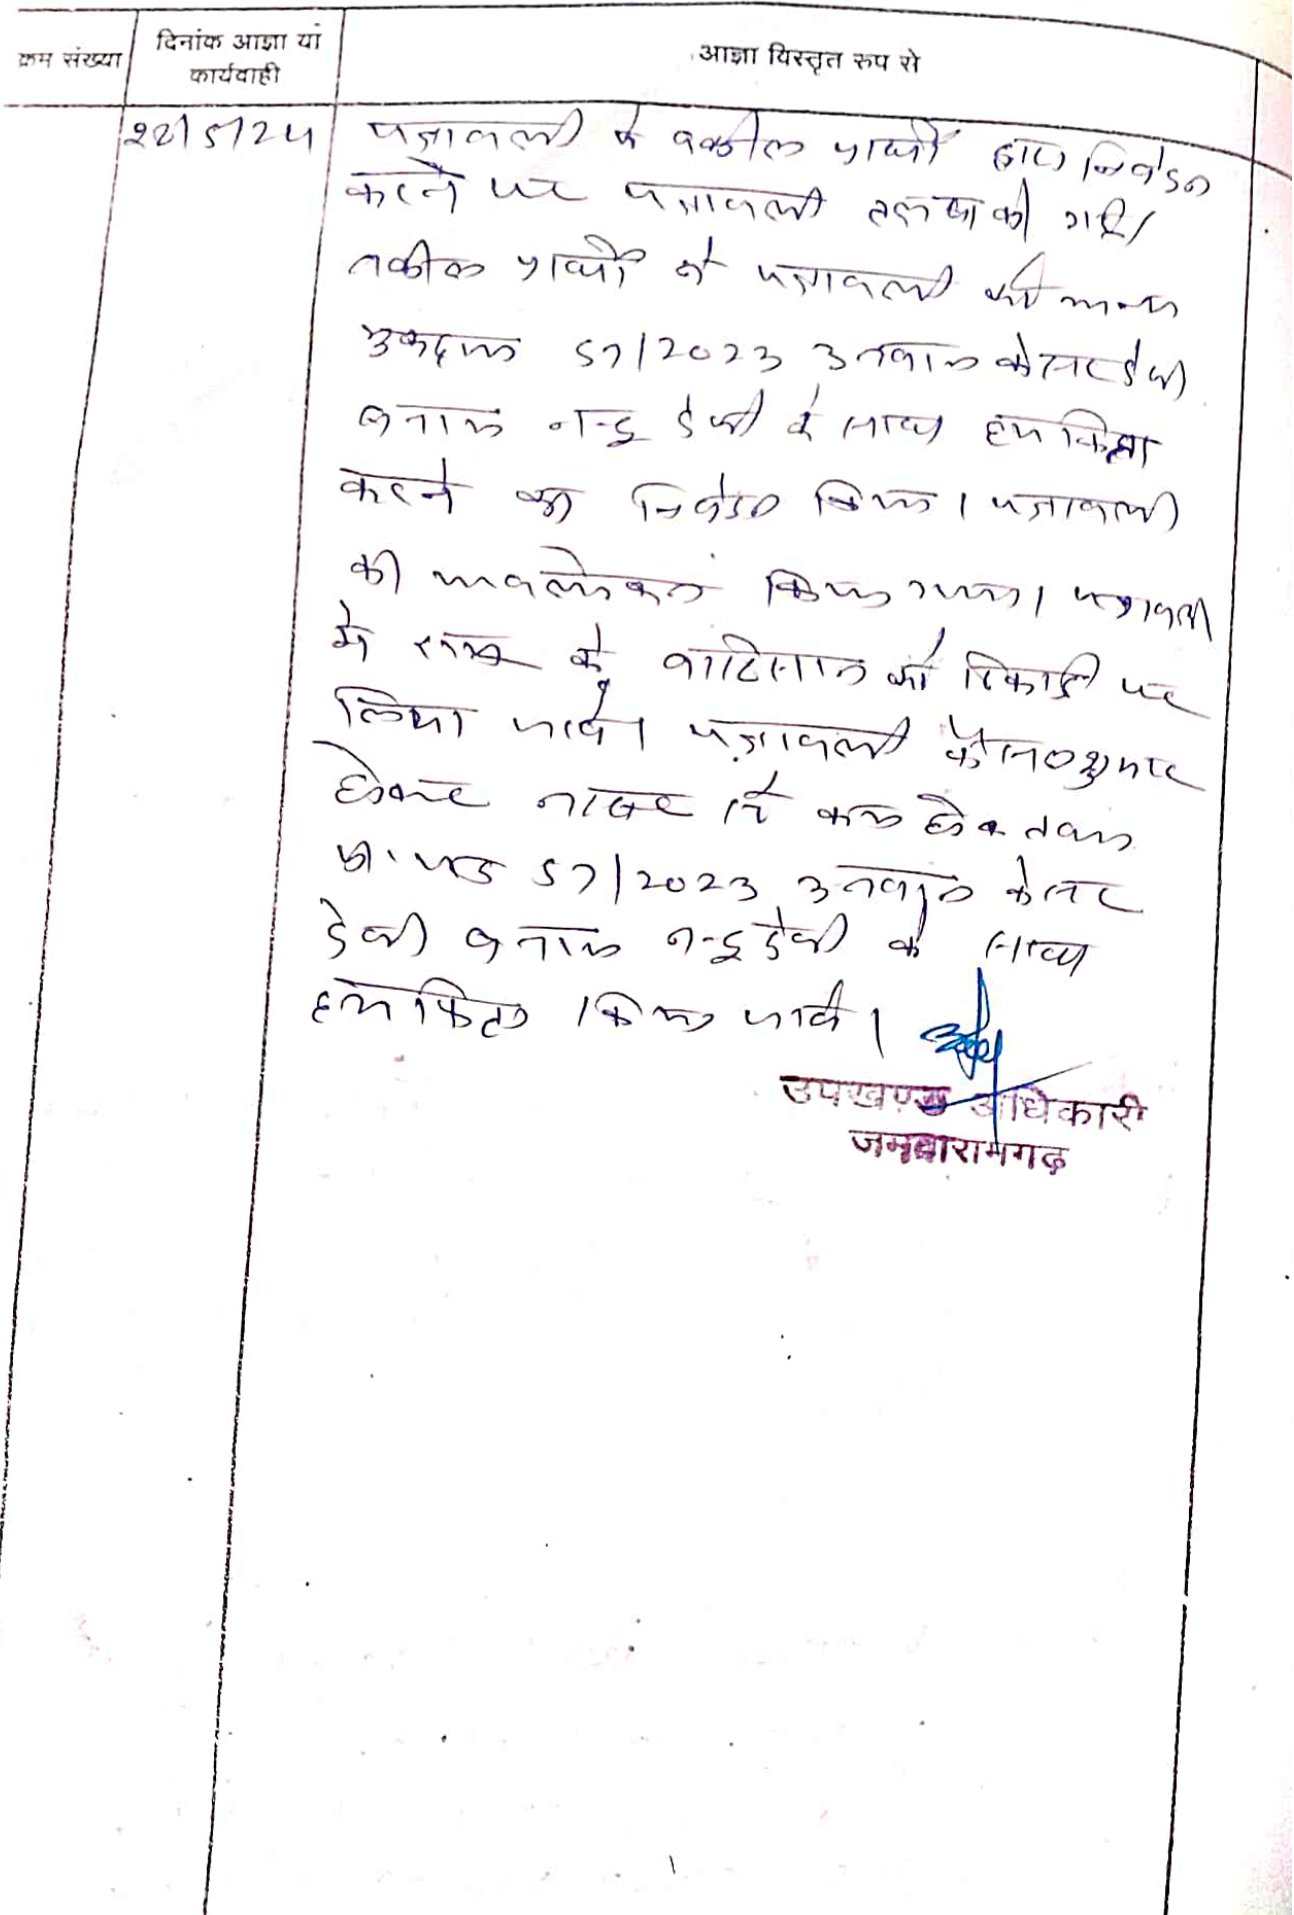 क्रम संख्या
दिनांक आज्ञा यां
कार्यवाही
आज्ञा विस्तृत रुप से
पत्रावली के वकील प्रार्थी द्वारा निवेदन
करने पर पत्रावली तलब की गई।
वकील प्रार्थी ने पत्रावली को अन्य
मुकदमा 57/2023 उनवान केसर देवी
बनाम नन्दू देवी के साथ हम किता
करने का निवेदन किया। पत्रावली
का अवलोकन किया गया। पत्रावली
के वारिसान को रिकार्ड पर
लिया जावे। पत्रावली फैसल शुमार
होकर नम्बर से कम हो
57/2023 उनवान केसर
देवी बनाम नन्दू देवी के साथ
हम किता किया जावे।
उपखण्ड अधिकारी
जमवारामगढ